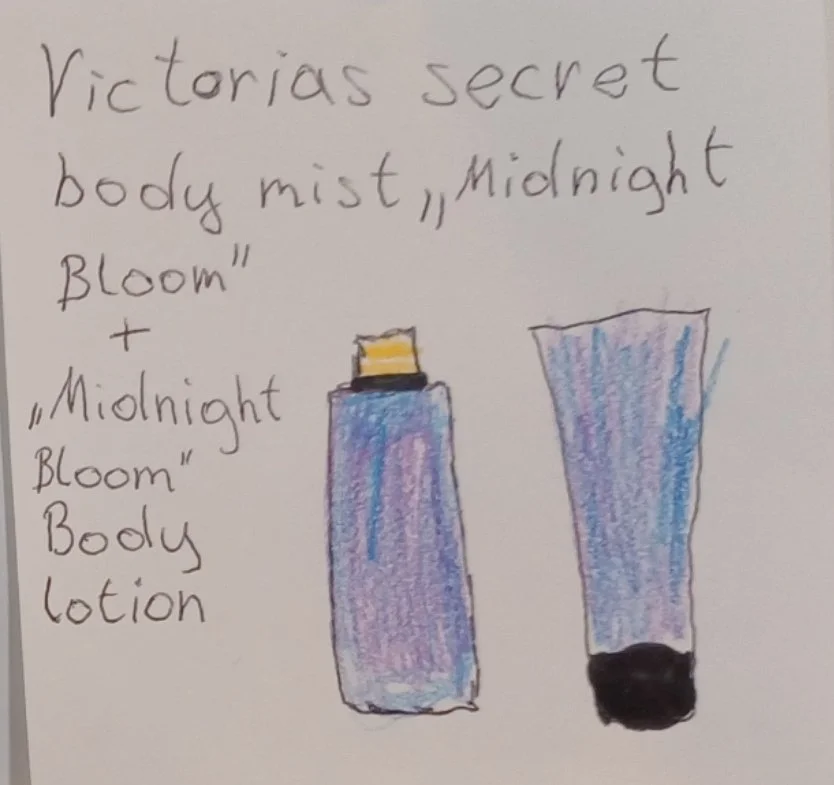 Victorias secret
body mist „Midnight
Bloom"
+
„Midnight
Bloom"
Body
lotion